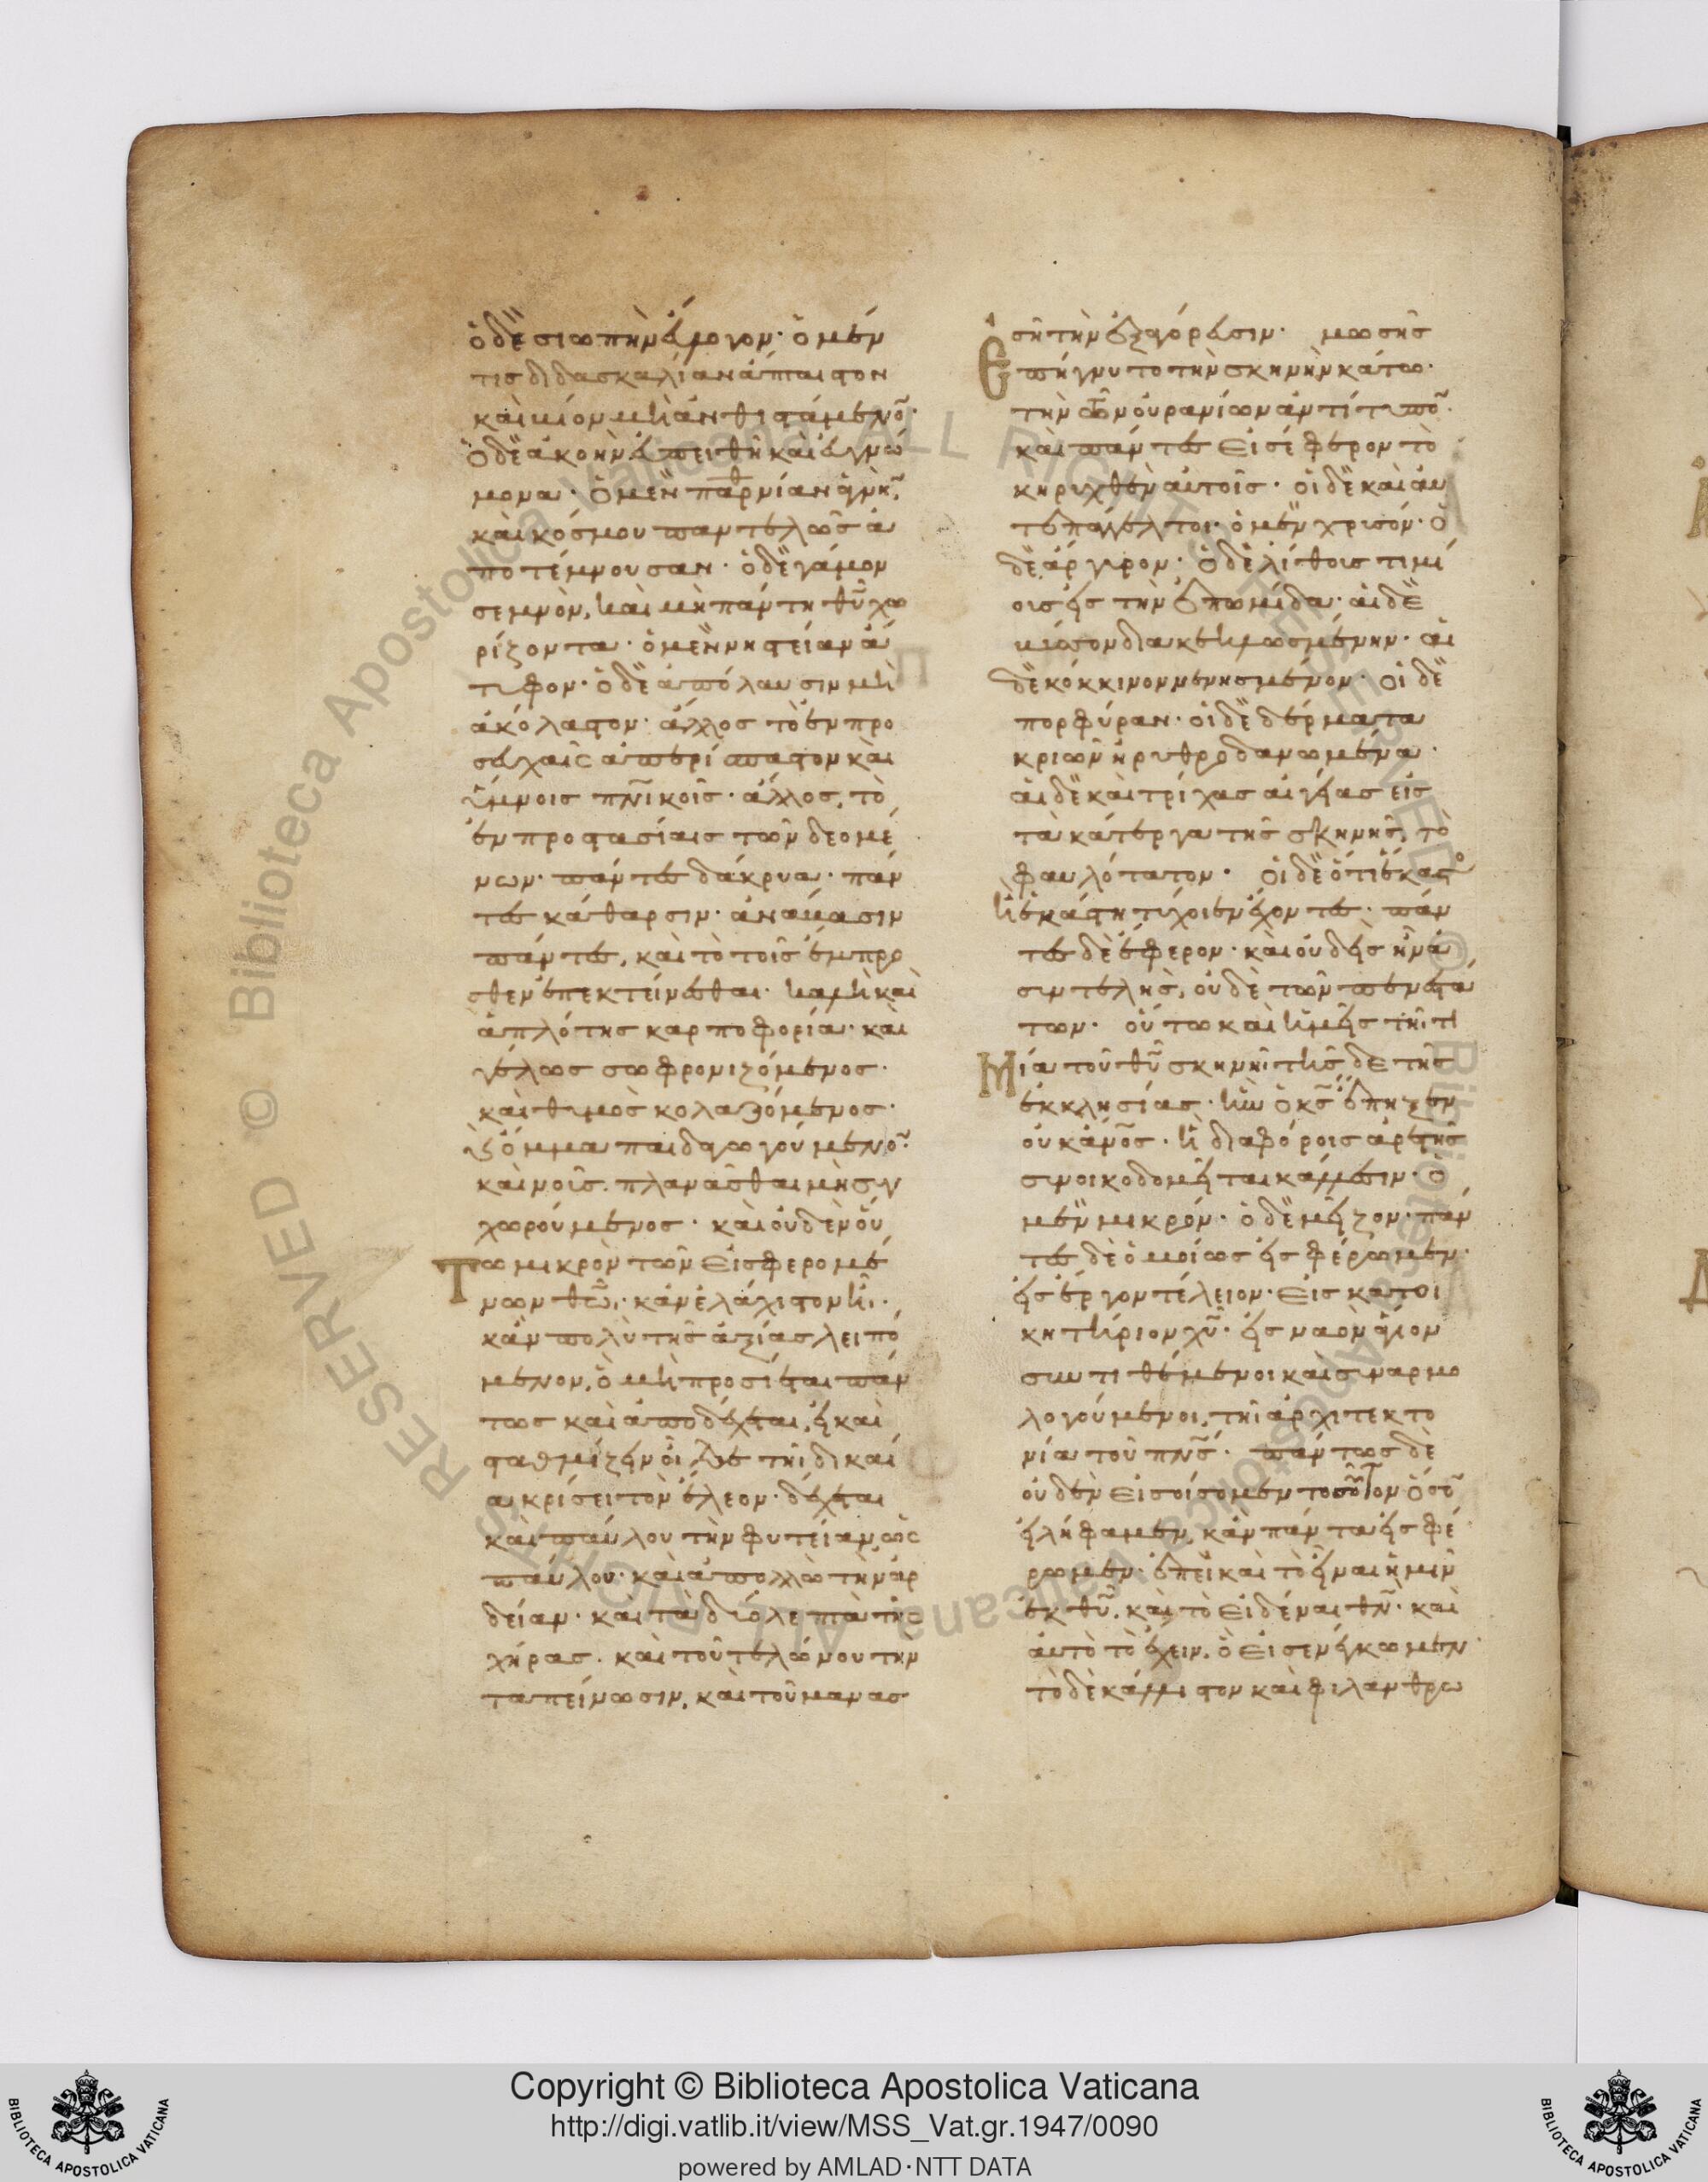 ὁ δὲ σιωπὴν εὔλογον· ὁ μέν
τις διδασκαλίαν ἄπταιστον
καὶ μίον μὴ ἀνθιστάμενον·
ὁ δὲ ἀκοὴν εὐπειθῆ καὶ εὐγνώ
μονα· ὁ μὲν παρθνίαν ἁγνὴν,
καὶ κόσμου παντελῶς ἀ
ποτέμνουσαν· ὁ δὲ γάμον
σεμνὸν, καὶ μὴ πάντη θῦ χω
ρίζοντα· ὁ μὲν νηστείαν ἄ
τυφον· ὁ δὲ ἀπόλαυσιν μὴ
ἀκόλαστον· ἄλλος τὸ ἐν προ
σευχαῖς ἀπερίσπαστον καὶ
ὕμνοις πνῖκοῖς· ἄλλος, τὸ
ἐν προστασίαις τῶν δεομέ
νων· πάντες δάκρυα· πάν
τες κάθαρσιν· ἀνάβασιν
πάντες, καὶ τὸ τοῖς ἔμπρο
σθεν ἐπεκτείνεσθαι· καλὴ καὶ
ἁπλότης καρποφορία· καὶ
γέλως σωφρονιζόμενος·
καὶ θυμὸς κολαζόμενος·
καὶ ὄμμα παιδαγωγούμενον·
καὶ νοῦς πλανᾶσθαι μὴ συγ
χωρούμενος· καὶ οὐδὲν οὕ
τω μικρὸν τῶν εἰσφερομέ
νων θῶ· κἂν ἐλάχιστον ᾖ·
κἂν πολὺ τῆς ἀξίας λειπό
μενον, ὃ μὴ προσίεται πάν
τως καὶ ἀποδέχεται, εἰ καὶ
σταθμίζειν οἶδε τῇ δικαί
αι κρίσει τὸν ἔλεον· δέχεται
καὶ παύλου τὴν φυτείαν, ὡς
παύλου· καὶ ἀπολλὼ τὴν ἀρ
δείαν· καὶ τὰ δύο λεπτὰ τῆς
χήρας· καὶ τοῦ τελώνου τὴν
ταπείνωσιν, καὶ τοῦ μανασ
σῆ τὴν ἐξαγόρευσιν· μωσῆς
ἐπήγνυτο τὴν σκηνὴν κάτω·
τὴν τῶν οὐρανίων ἀντίτυπον·
καὶ πάντες εἰσέφερον τὸ
κηρυχθὲν αὐτοῖς· οἱ δὲ καὶ αὐ
τεπάγγελτοι· ὁ μὲν χρυσόν· ὁ
δὲ ἄργυρον· ὁ δὲ λίθους τιμί
ους εἰς τὴν ἐπωμίδα· αἱ δὲ
βύσσον διακεκλωσμένην· αἱ
δὲ κόκκινον νενησμένον· οἱ δὲ
πορφύραν· οἱ δὲ δέρματα
κριῶν ἠρυθροδανωμένα·
αἱ δὲ καὶ τρίχας αἰγείας εἰς
τὰ κάτεργα τῆς σκηνῆς, τὸ
φαυλότατον· οἱ δὲ ὅτι ἕκαστος
ἢ ἑκάστη τύχοιεν ἔχοντες· πάν
τες δὲ ἔφερον· καὶ οὐδεὶς ἦν ἀ
συντελὴς, οὐδὲ τῶν πενεστά
των· οὕτω καὶ ἡμεῖς τῇ τι
μία τοῦ θῦ σκηνῇ τῆς δε τῆς
ἐκκλησίας· ἣν ὁ κς ἔπηξεν
οὐκ ἄνος· ἢ διαφόροις ἀρετῆς
συνοικοδομεῖται κάλλεσιν· ὁ
μὲν μικρόν· ὁ δὲ μεῖζον· πάν
τες δὲ ὁμοίως εἰσφέρωμεν·
εἰς ἔργον τέλειον· εἰς κατοι
κητήριον χῦ· εἰς ναὸν ἅγιον
συντιθέμενοι καὶ συναρμο
λογούμενοι, τῇ ἀρχιτεκτο
νία τοῦ πνς· πάντως δὲ
οὐδὲν εἰσοίσομεν τοσοῦτον ὅσον
εἰλήφαμεν, κἂν πάντα εἰσφέ
ρωμεν· ἐπεὶ καὶ τὸ εἶναι ἡμῖν
ἐκ θῦ, καὶ τὸ εἰδέναι θν· καὶ
αὐτὸ τὸ ἔχειν, ὃ εἰσενέγκωμεν·
τὸ δὲ κάλλιστον καὶ φιλανθρω
Copyright © Biblioteca Apostolica Vaticana
http://digi.vatlib.it/view/MSS_Vat.gr.1947/0090
powered by AMLAD·NTT DATA
BIBLIOTECA APOSTOLICA VATICANA
BIBLIOTECA APOSTOLICA VATICANA
© Biblioteca Apostolica Vaticana ALL RIGHTS RESERVED
© Biblioteca Apostolica Vaticana ALL RIGHTS RESERVED